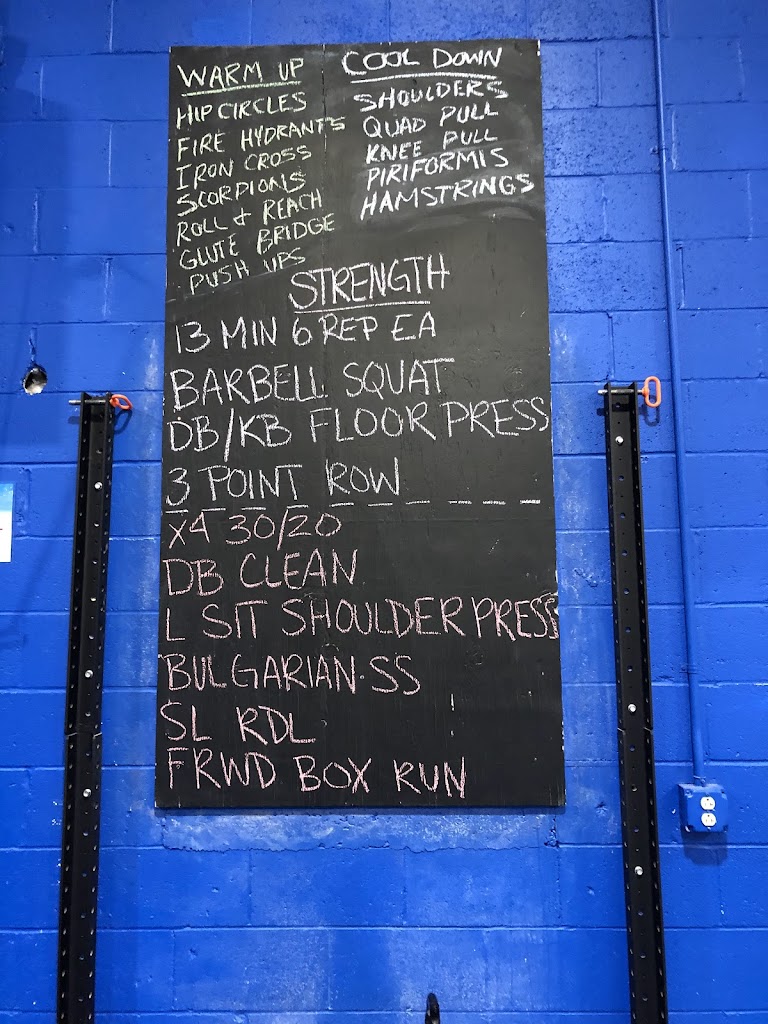 WARM UP
HIP CIRCLES
FIRE HYDRANTS
IRON CROSS
SCORPIONS
ROLL & REACH
GLUTE BRIDGE
PUSH UPS
COOL DOWN
SHOULDERS
QUAD PULL
KNEE PULL
PIRIFORMIS
HAMSTRINGS
STRENGTH
13 MIN 6 REP EA
BARBELL SQUAT
DB/KB FLOOR PRESS
3 POINT ROW
X4 30/20
DB CLEAN
L SIT SHOULDER PRESS
BULGARIAN SS
SL RDL
FRWD BOX RUN